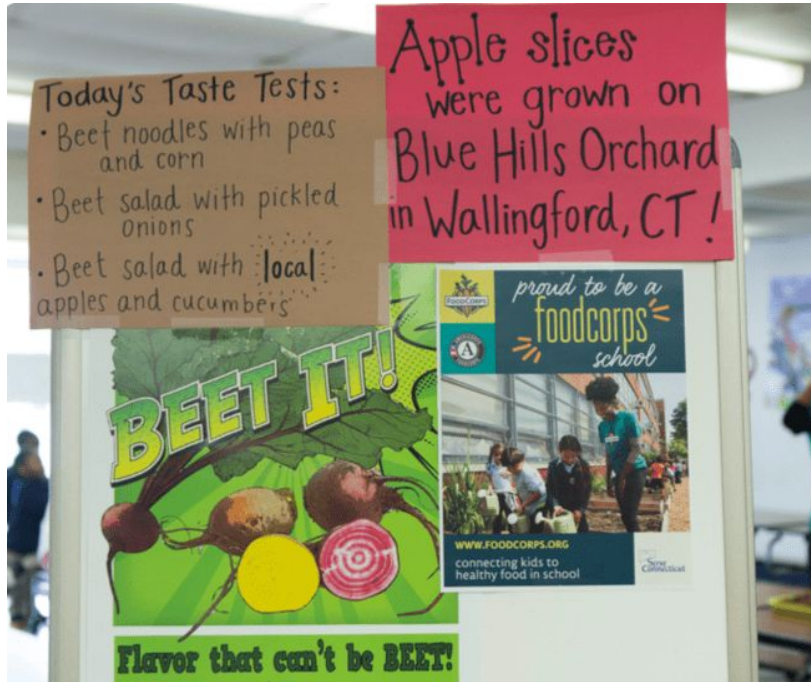 Today's Taste Tests:
• Beet noodles with peas
and corn
• Beet salad with pickled
onions
• Beet salad with local
apples and cucumbers
Apple slices
were grown on
Blue Hills Orchard
in Wallingford, CT!
BEET IT!
Flavor that can't be BEET!
FOODCORPS
A
proud to be a
foodcorps
school
WWW.FOODCORPS.ORG
connecting kids to
healthy food in school
Serve
Connecticut